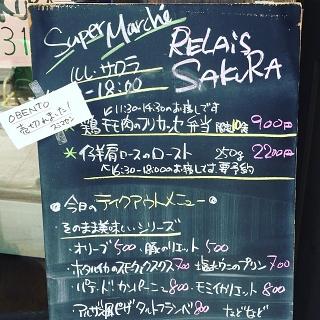 Super Marché
RELAIS
SAKURA
-18:00
OBENTO
売切れました!
スミマセン
11:30-14:30のお渡しです
鶏モモ肉のフリカッセ弁当 限定10食 900円
肩ロースのロースト 250g 2200円
16:30-18:00お渡しです 要予約
今日のテイクアウトメニュー
そのまま美味しいシリーズ
・オリーブ 500 ・豚のリエット 500
・ホタルイカのエスカベッシュ 700 ・塩水ウニのプリン 700
・パテ・ド・カンパーニュ 800 ・モミイカリエット 800
アルザス風ピザ タルトフランベ 800 などなど